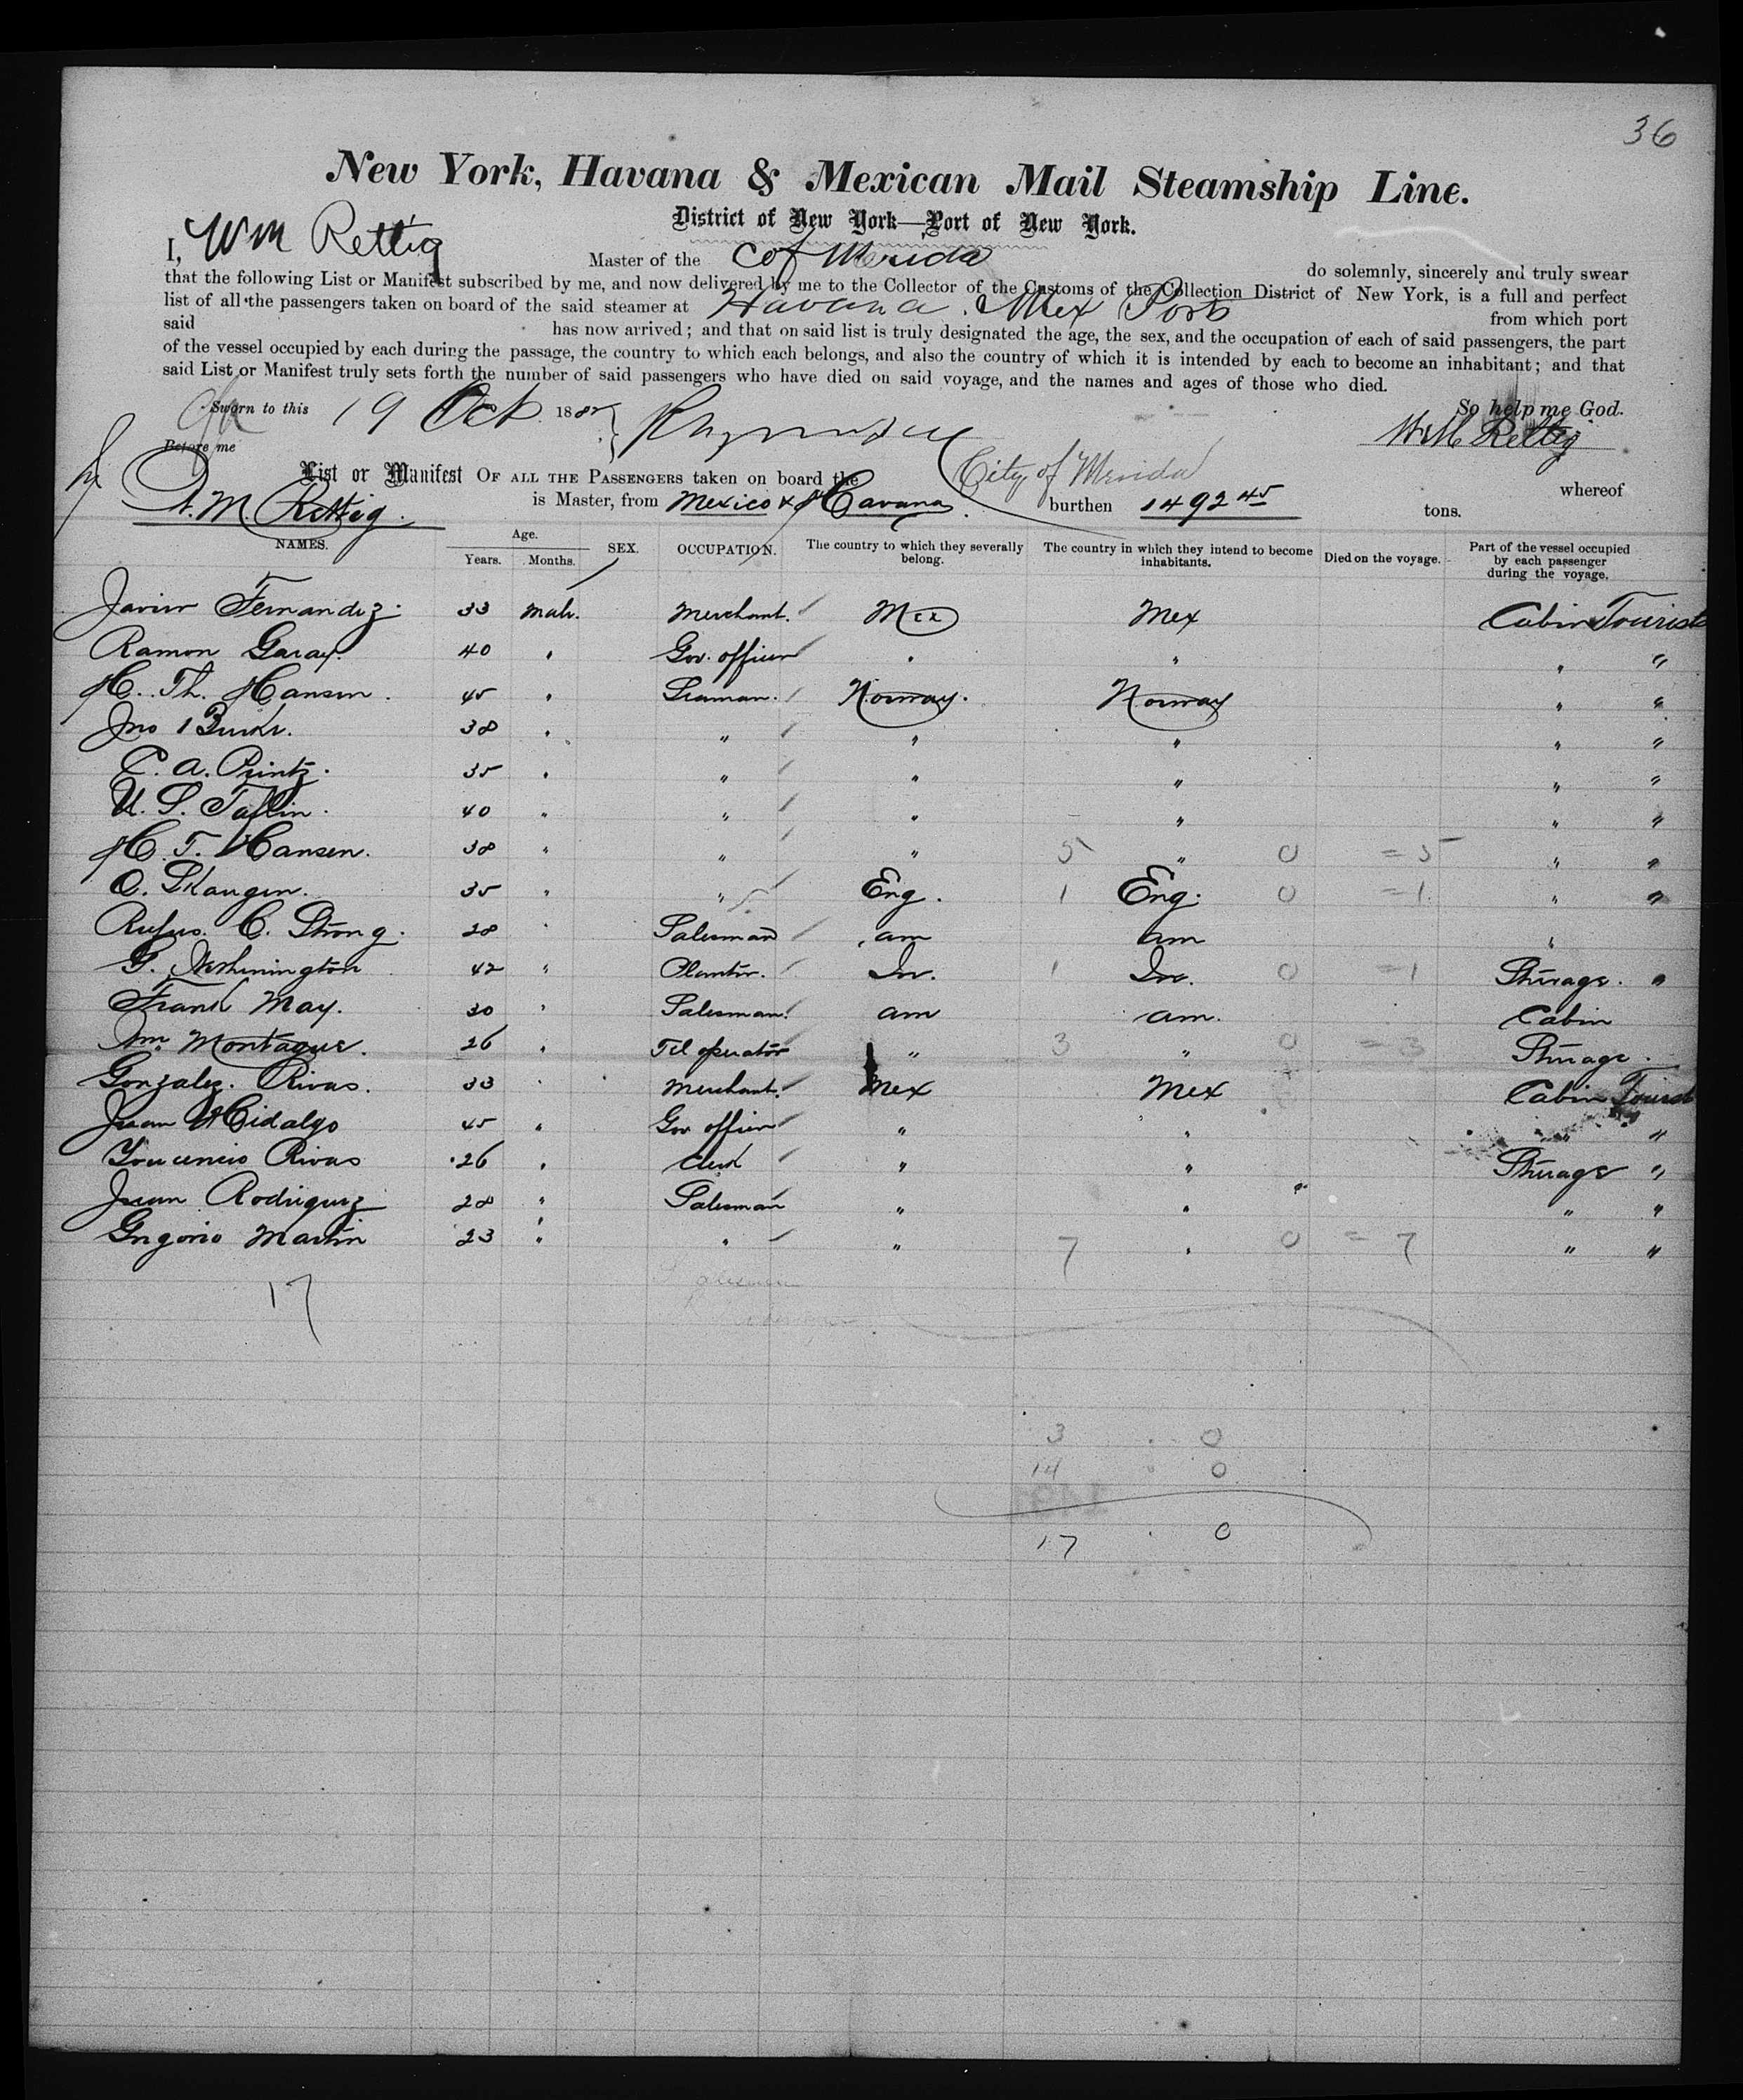 36
New York, Havana & Mexican Mail Steamship Line.
District of New York—Port of New York.
I, Wm Rettig Master of the C of Merida do solemnly, sincerely and truly swear
that the following List or Manifest subscribed by me, and now delivered by me to the Collector of the Customs of the Collection District of New York, is a full and perfect
list of all the passengers taken on board of the said steamer at Havana. Mex Ports from which port
said has now arrived; and that on said list is truly designated the age, the sex, and the occupation of each of said passengers, the part
of the vessel occupied by each during the passage, the country to which each belongs, and also the country of which it is intended by each to become an inhabitant; and that
said List or Manifest truly sets forth the number of said passengers who have died on said voyage, and the names and ages of those who died.
Sworn to this 19 Oct 1882 So help me God.
Before me Wm Rettig
List or Manifest OF ALL THE PASSENGERS taken on board the City of Merida whereof
W. M. Rettig. is Master, from Mexico & Havana. burthen 1492 45 tons.
NAMES. Age. Years. Months. SEX. OCCUPATION. The country to which they severally belong. The country in which they intend to become inhabitants. Died on the voyage. Part of the vessel occupied by each passenger during the voyage.
Javier Fernandez. 33 Male. Merchant. Mex Mex Cabin Tourist
Ramon Garay. 40 " Gov. officer " " " "
H. Th. Hansen. 45 " Seaman. Norway. Norway " "
Jno Burke. 38 " " " " " "
C. A. Printz. 35 " " " " " "
U. S. Taflin. 40 " " " " " "
H. T. Hansen. 38 " " " 5 " 0 = 5 " "
O. Skaugen. 35 " " Eng. 1 Eng. 0 = 1 " "
Rufus. C. Strong. 28 " Salesman am am "
G. Washinington 42 " Planter. Ire. 1 Ire. 0 = 1 Steerage. "
Frank May. 30 " Salesman. am am. Cabin
Wm. Montague. 26 " Tel operator " 3 " 0 = 3 Steerage.
Gonzalez. Rivas. 33 " Merchant. Mex Mex Cabin Tourist
Juan Hidalgo 45 " Gov officer " " " "
Rivas 26 " Clerk " " Steerage "
Juan Rodriguez 28 " Salesman " " " "
Gregorio Martin 23 " " " 7 " 0 = 7 " "
17
3 0
14 0
17 0